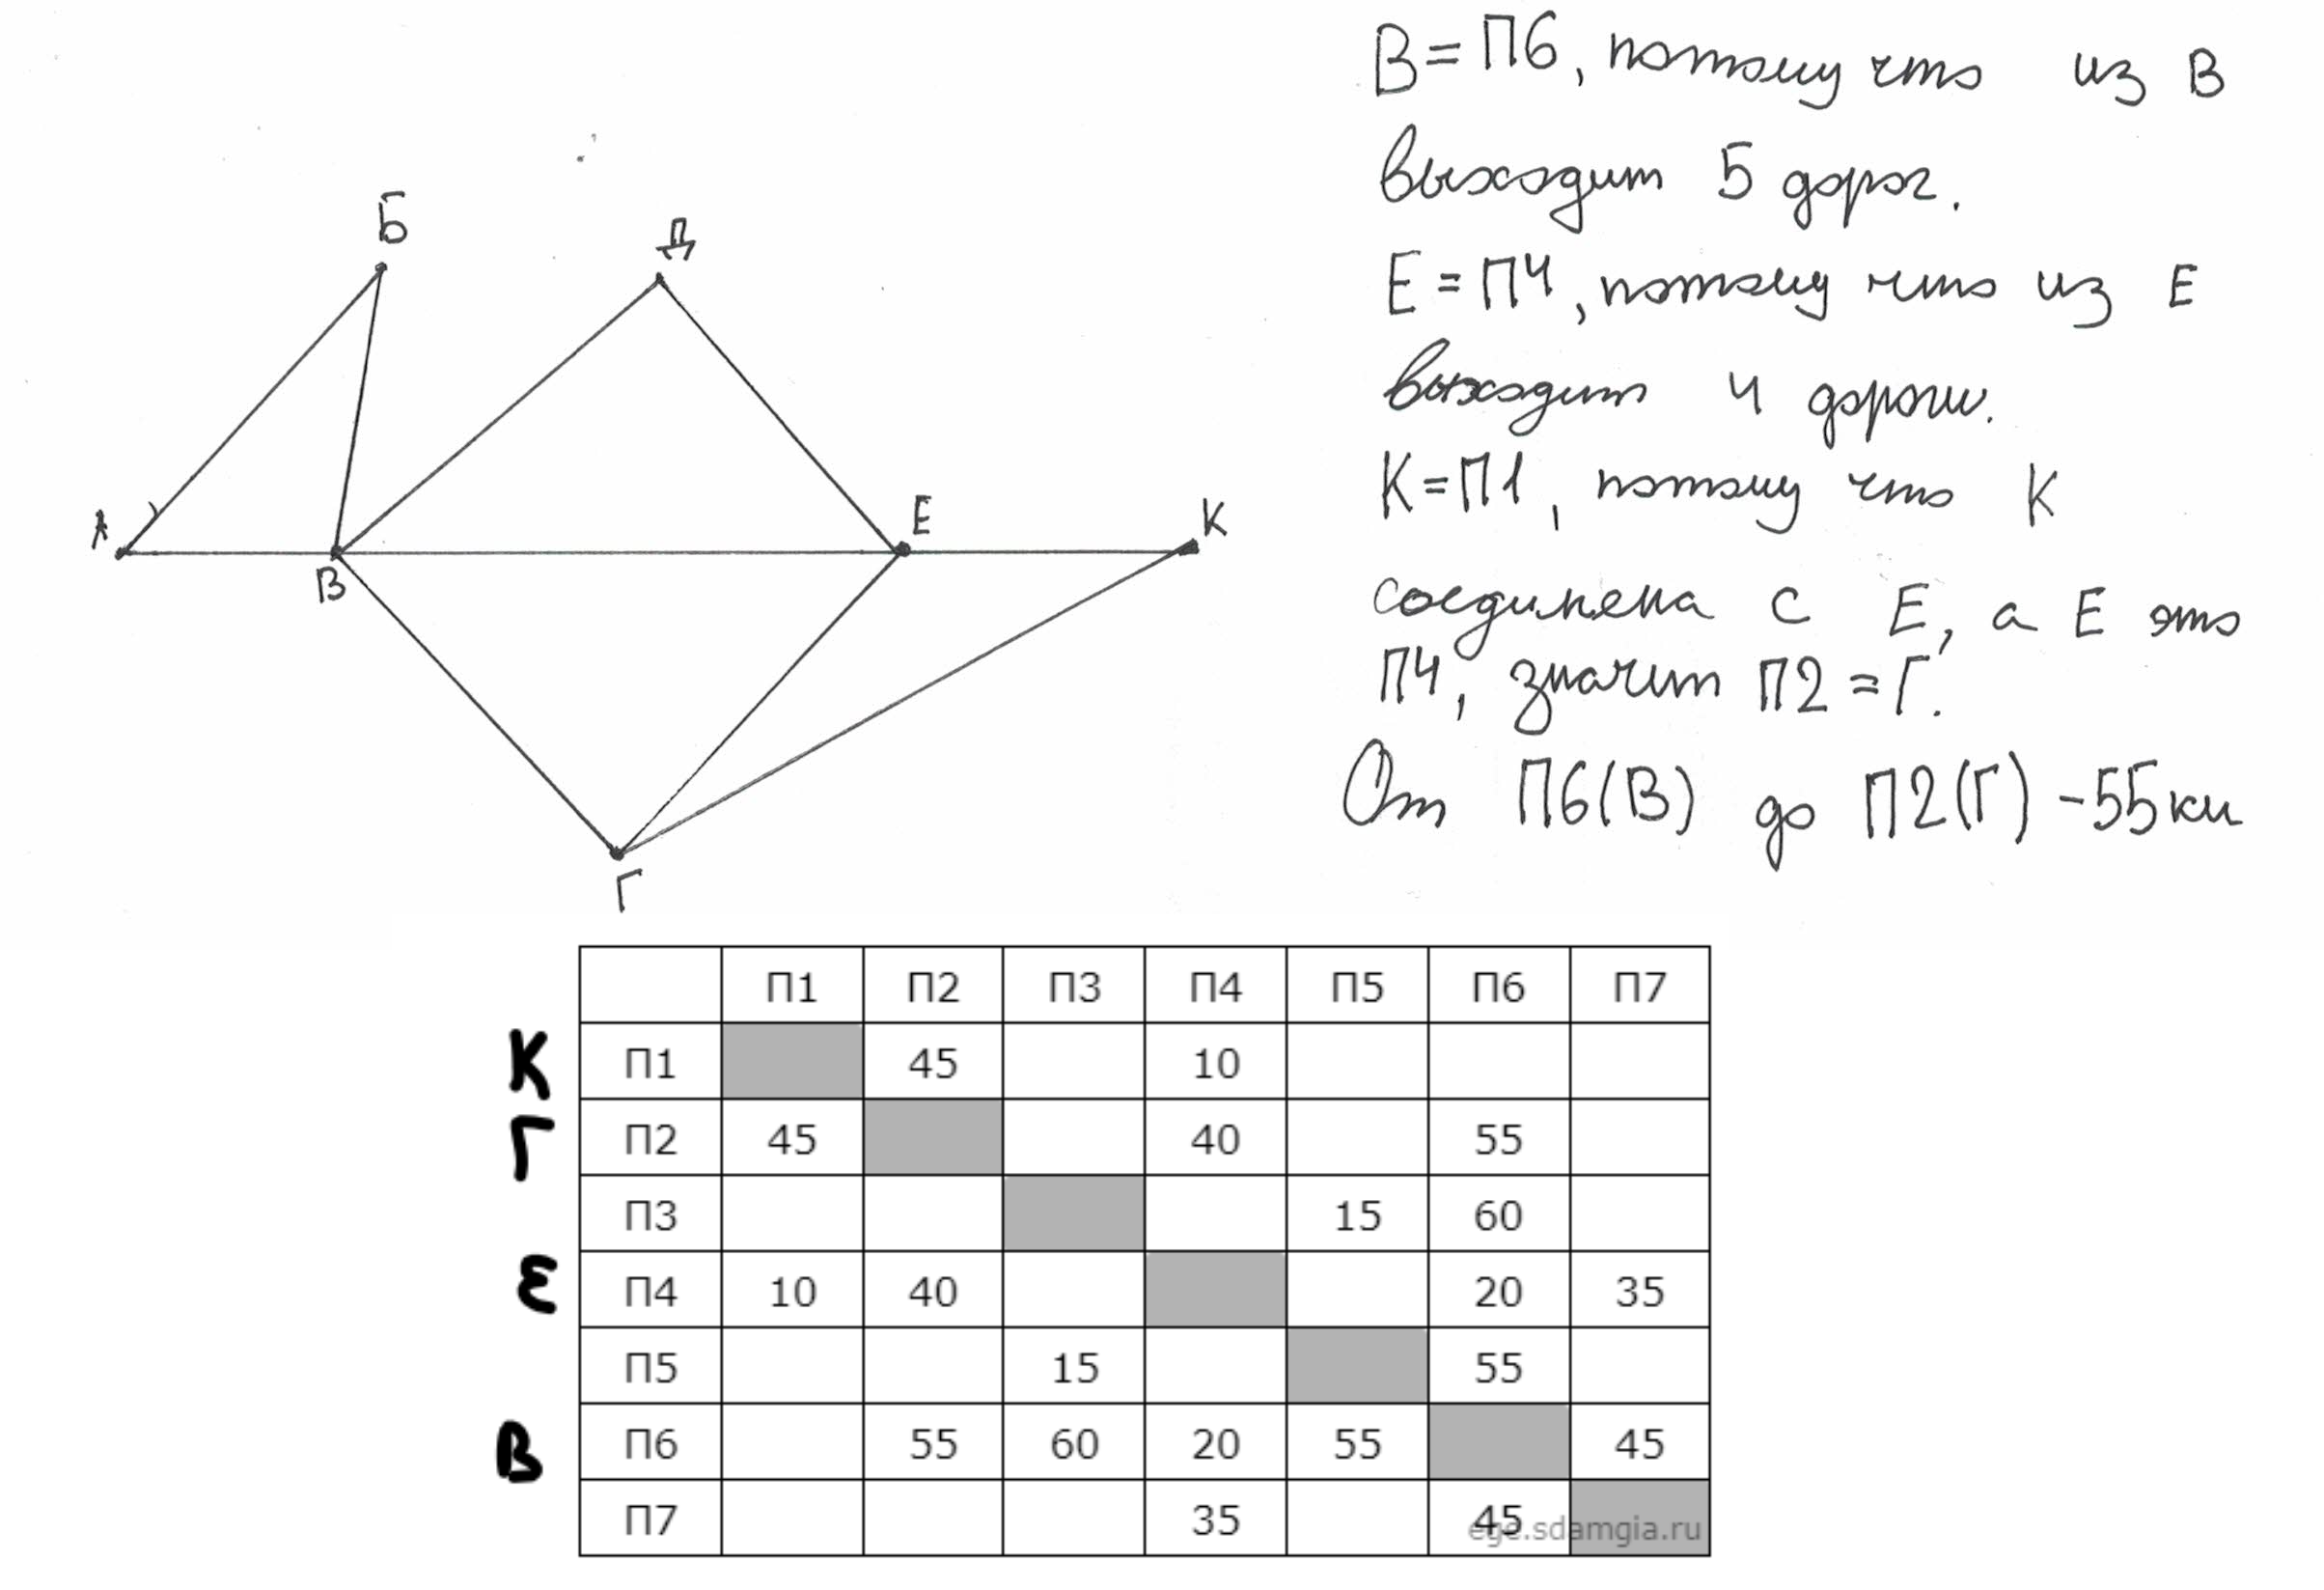 Б
Д
А
В
Е
К
Г
В=П6, потому что из В
выходит 5 дорог.
Е=П4, потому что из Е
выходит 4 дороги.
К=П1, потому что К
соединена с Е, а Е это
П4, значит П2=Г.
От П6(В) до П2(Г) -55км
П1 П2 П3 П4 П5 П6 П7
К П1 45 10
Г П2 45 40 55
П3 15 60
Е П4 10 40 20 35
П5 15 55
В П6 55 60 20 55 45
П7 35 45
ege.sdamgia.ru